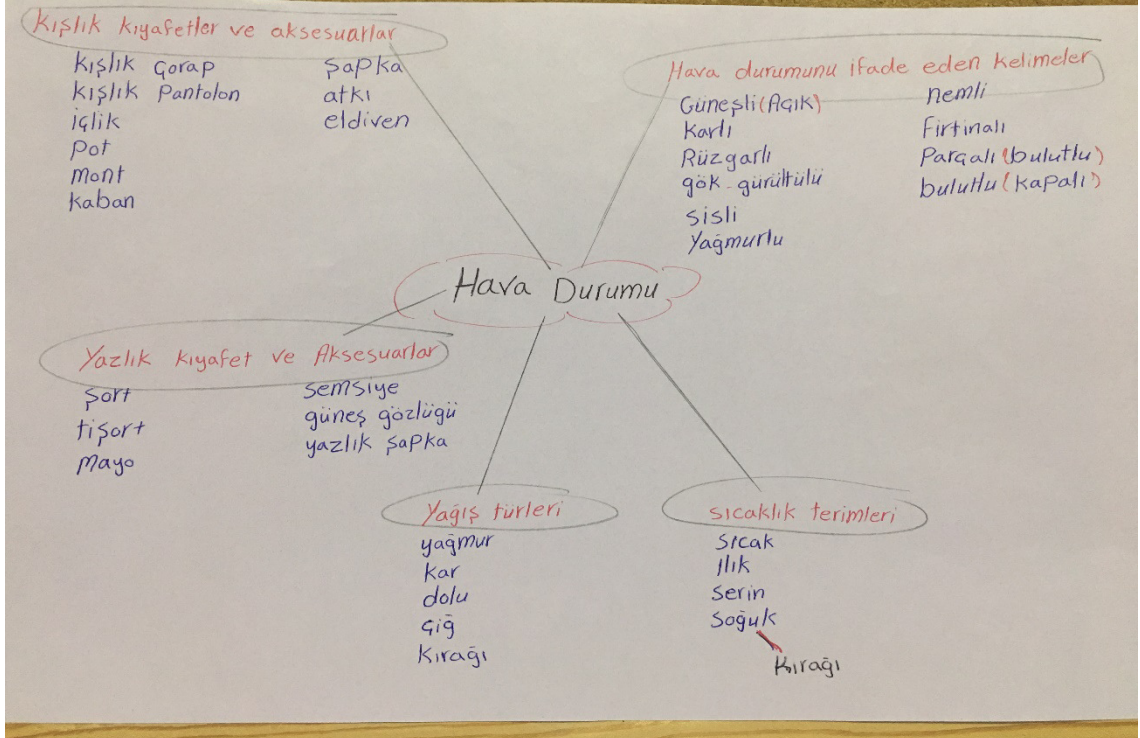 Kışlık kıyafetler ve aksesuarlar
kışlık çorap
kışlık Pantolon
içlik
Pot
mont
kaban
şapka
atkı
eldiven
Hava durumunu ifade eden kelimeler
Güneşli (Açık)
Karlı
Rüzgarlı
gök-gürültülü
sisli
Yağmurlu
nemli
Firtinalı
Parçalı (bulutlu)
bulutlu (kapalı)
Hava Durumu
Yazlık kıyafet ve Aksesuarlar
şort
tişort
mayo
semsiye
güneş gözlügü
yazlık şapka
Yağış türleri
yağmur
kar
dolu
çiğ
kırağı
sıcaklık terimleri
sıcak
ılık
serin
soğuk
kırağı